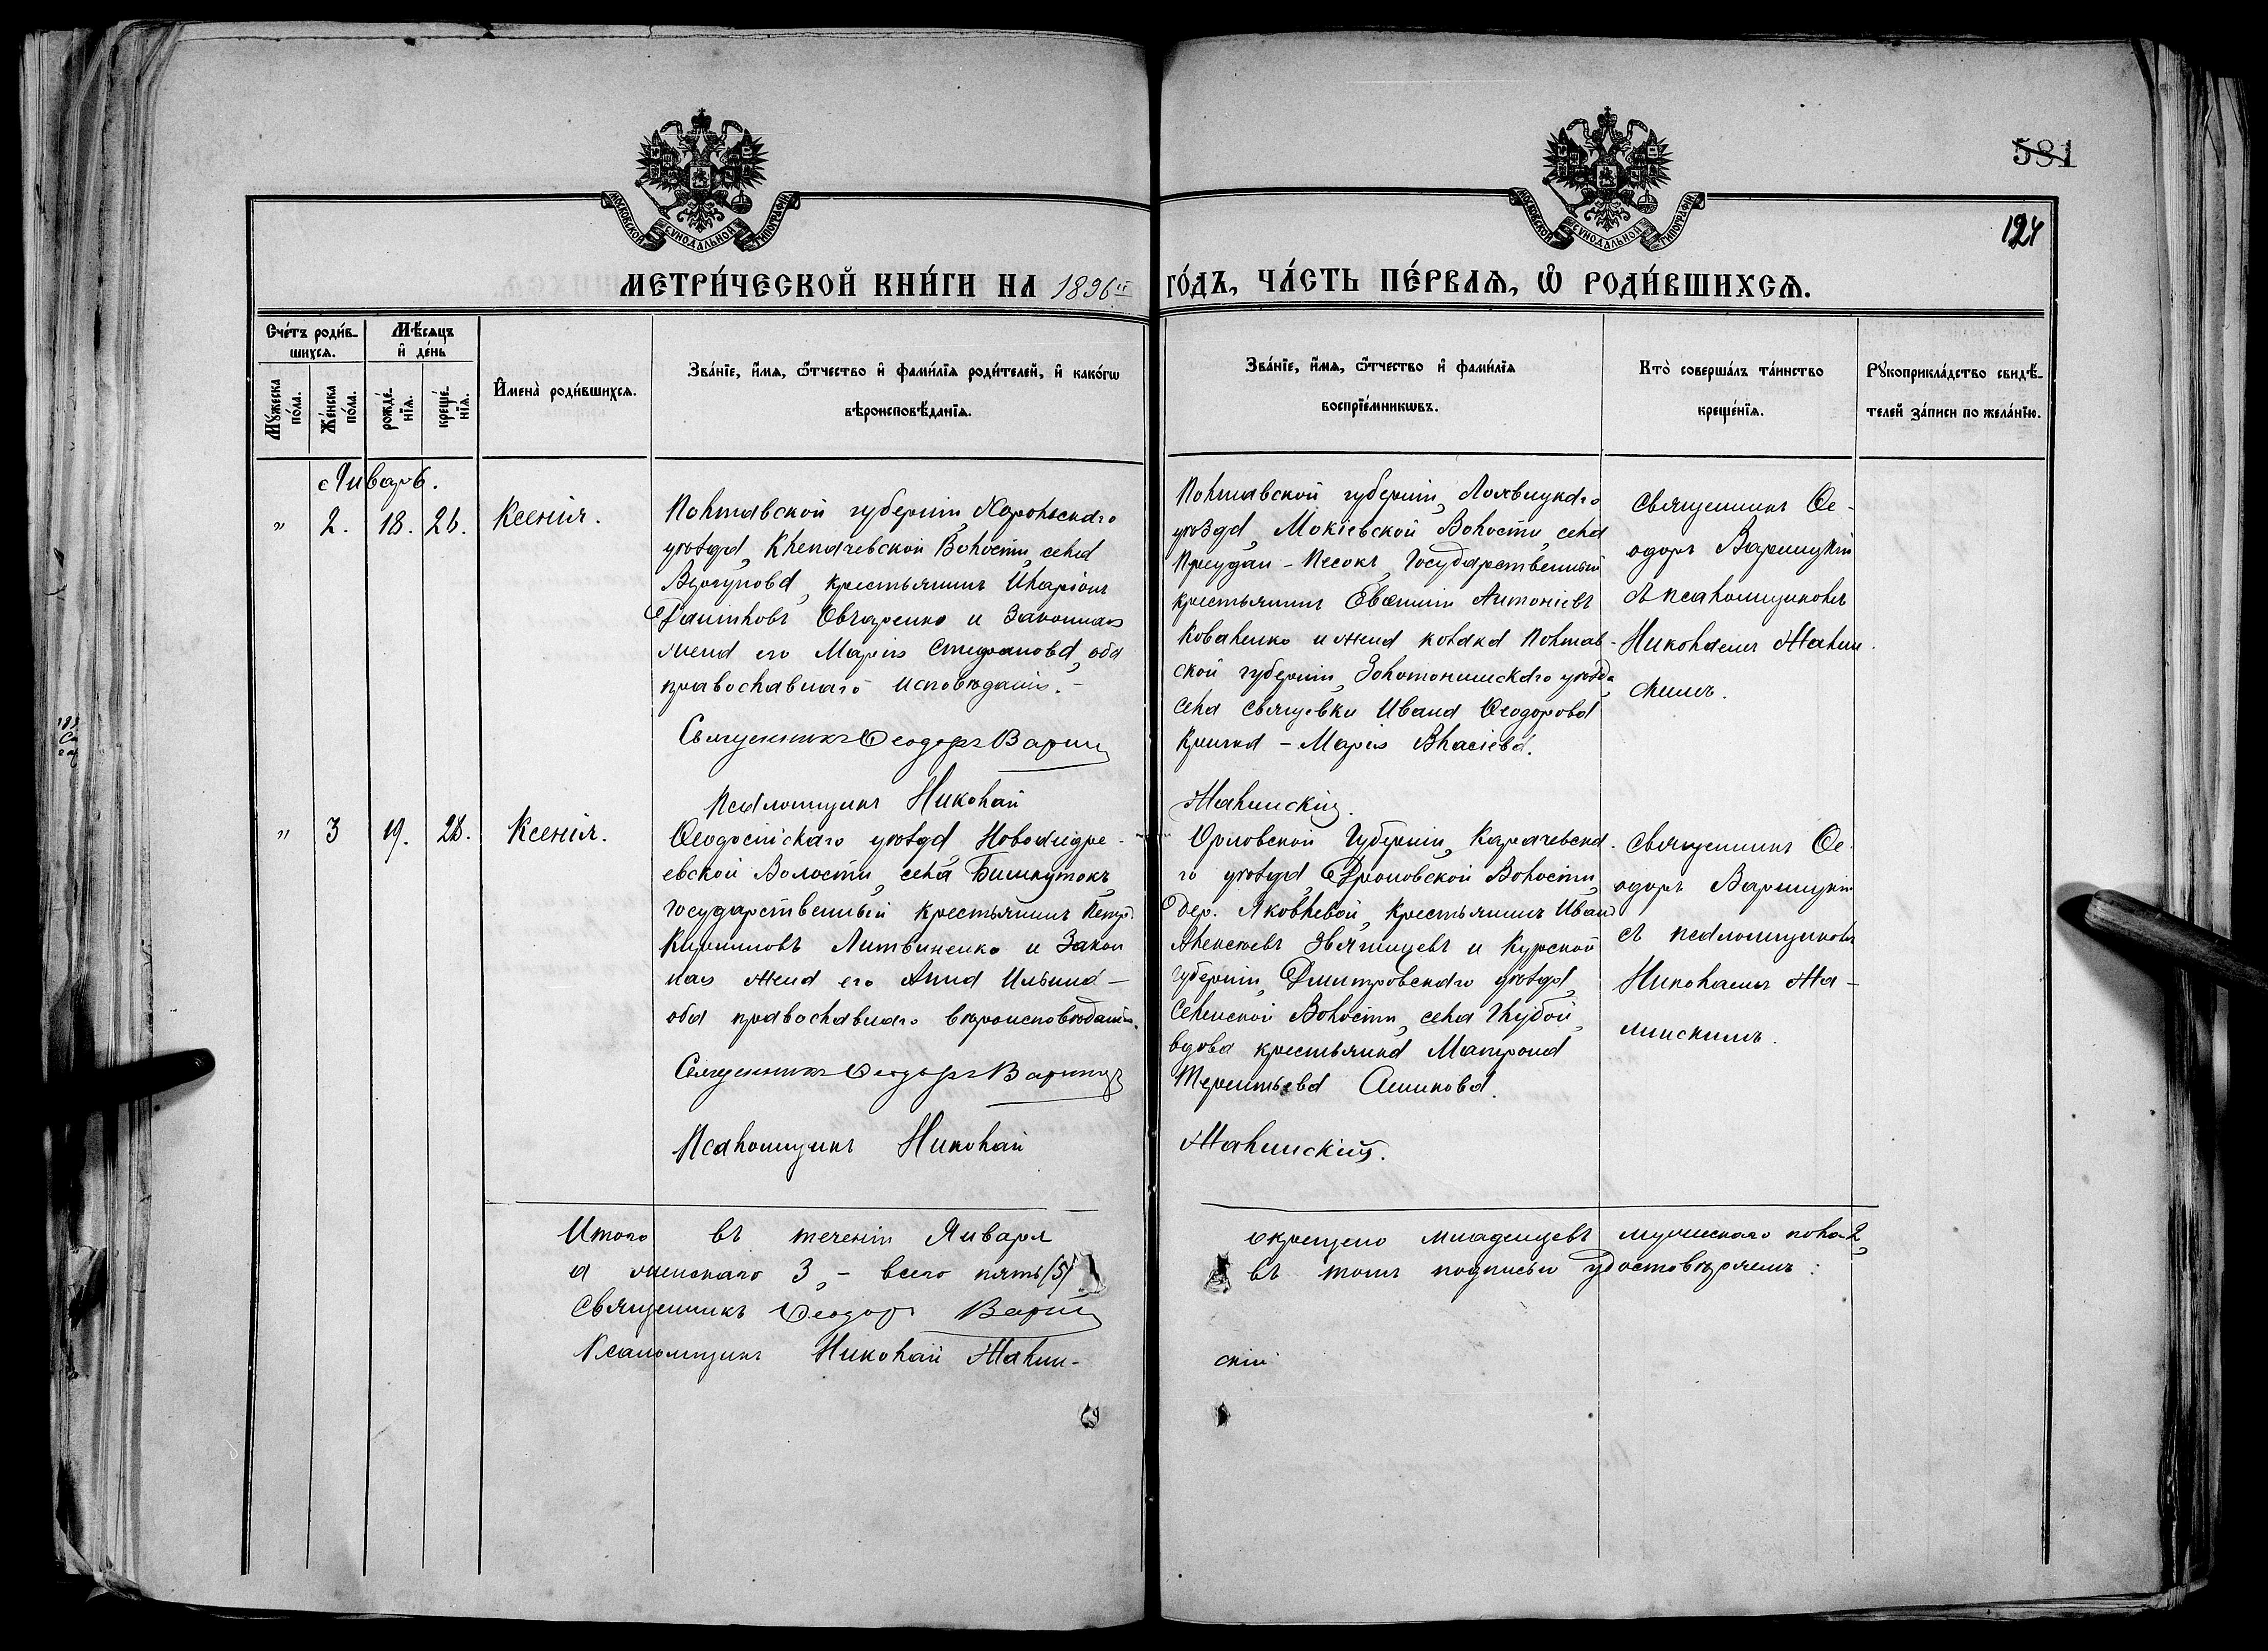 581
124
МОСКОВСКОЙ СѴНОДАЛЬНОЙ ТИПОГРАФІИ
МОСКОВСКОЙ СѴНОДАЛЬНОЙ ТИПОГРАФІИ
МЕТРИ́ЧЕСКОЙ КНИ́ГИ НА 1896й ГО́ДЪ, ЧА́СТЬ ПЕ́РВАѦ, Ѽ РОДИ́ВШИХСѦ.
Счéтъ роди́в-
шихсѧ.
Мѣ́сѧцъ
и҆ де́нь
Мꙋ́жеска
по́ла.
Же́нска
по́ла.
рожде́-
нїѧ.
креще́-
нїѧ.
И҆мена̀ роди́вшихсѧ.
Зва́нїе, и҆́мѧ, ѻ҆́тчество и҆ фами́лїѧ роди́телей, и҆ како́гѡ
вѣроисповѣ́данїѧ.
Зва́нїе, и҆́мѧ, ѻ҆́тчество и҆ фами́лїѧ
воспрїе́мникѡвъ.
Кто̀ соверша́лъ та́инство
креще́нїѧ.
Рꙋкоприкла́дство свидѣ́-
телей за́писи по жела́нїю.
Январь.
" 2. 18. 26. Ксенія.
Полтавской губерніи, Хорольскаго
уѣзда, Клепачевской Волости, села
крестьянинъ Иларіонъ
Данііловъ Овчаренко и Законная
жена его Марія Стефанова, оба
православнаго исповѣданія. -
Священникъ Ѳеодоръ Вариц
Псаломщикъ Николай
Полтавской губерніи, Лохвицкаго
уѣзда, Мокіевской Волости, села
Песокъ, Государственный
крестьянинъ Евѳимій Антоніевъ
Коваленко и жена козака Полтав-
ской губерніи, Золотоношскаго уѣзда,
села Ивана Ѳеодорова
Марія Власіева.
Жалинскій.
Священникъ Ѳе-
одоръ Варицкій
съ псаломщикомъ
Николаемъ Жалин-
скимъ.
" 3 19. 28. Ксенія.
Ѳеодосійскаго уѣзда, Ново
евской Волости, села
Государственный крестьянинъ Петръ
Кирилловъ Литвиненко и Закон
ная жена его Анна Ильина -
оба православнаго вѣроисповѣданія.
Священникъ Ѳеодоръ Вариц
Псаломщикъ Николай
Орловской Губерніи, Карачевска-
го уѣзда, Дроновской Волости,
дер. Яковлевой, крестьянинъ Иванъ
Алексѣевъ Звягинцевъ и Курской
губерніи, Дмитровскаго уѣзда,
Селинской Волости, села Глубой,
вдова крестьянка Матрона
Терентьева Ашикова.
Жалинскій.
Священникъ Ѳе-
одоръ Варицкій
съ псаломщикомъ
Николаемъ Жа-
линскимъ.
Итого въ теченіи Января окрещено младенцевъ мужескаго пола 2,
а женскаго 3, - всего пять (5) въ томъ подписью удостовѣряемъ:
Священникъ Ѳеодоръ Вариц
Псаломщикъ Николай Жалин- скій